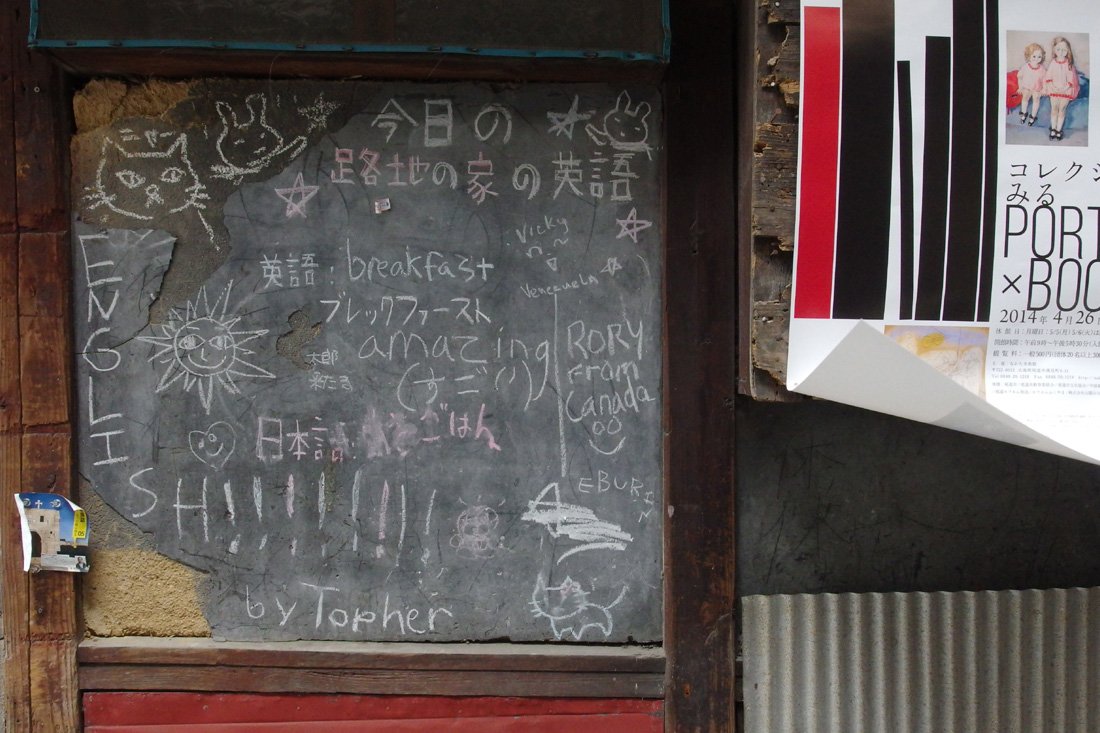 今日の
路地の家の英語
ENGLISH!!!!!!!!
Vicky
Venezuela
英語: breakfast
ブレックファースト
amazing
(すごい)
太郎
RORY
From
Canada
日本語: あさごはん
EBURIN
by Topher
コレクシ
みる
PORT
×BOO
2014年4月26